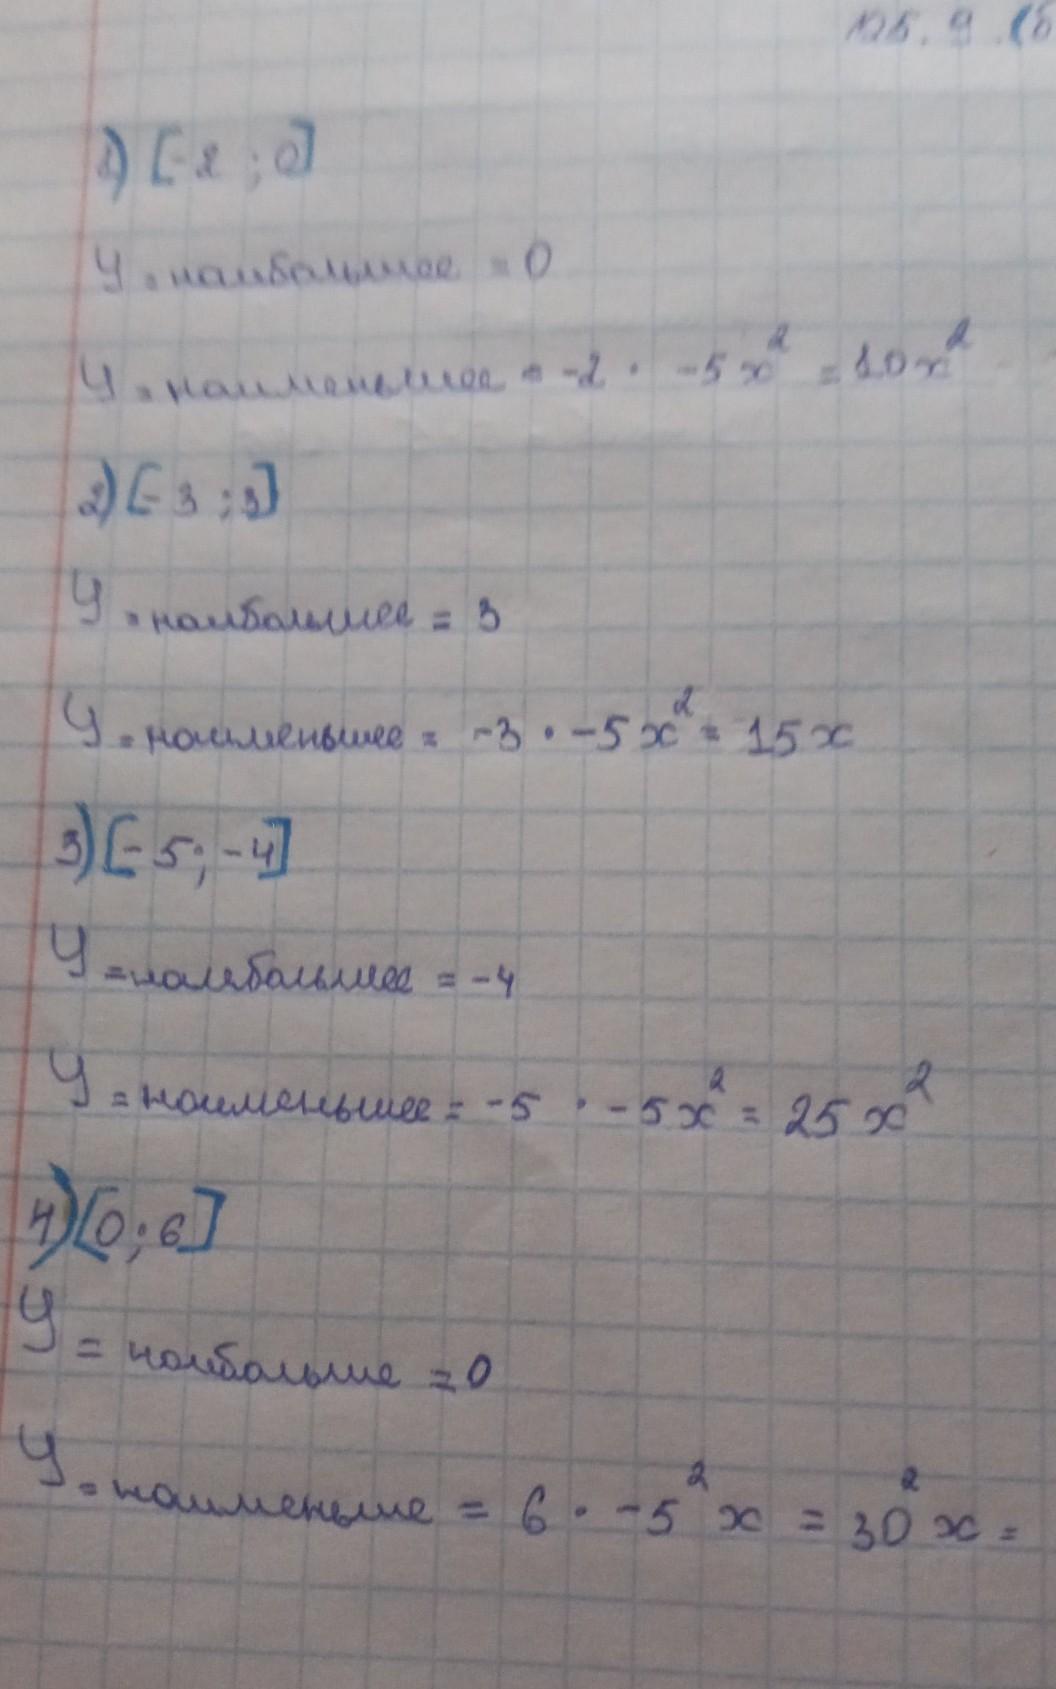 1) [-2 ; 0]
У = наибольшее = 0
У = наименьшее = -2 · -5x² = 10x²
2) [-3 ; 3]
У = наибольшее = 3
У = наименьшее = -3 · -5x² = 15x
3) [-5; -4]
У = наибольшее = -4
У = наименьшее = -5 · -5x² = 25x²
4) [0; 6]
У = наибольше = 0
У = наименьше = 6 · -5²x = 30²x =